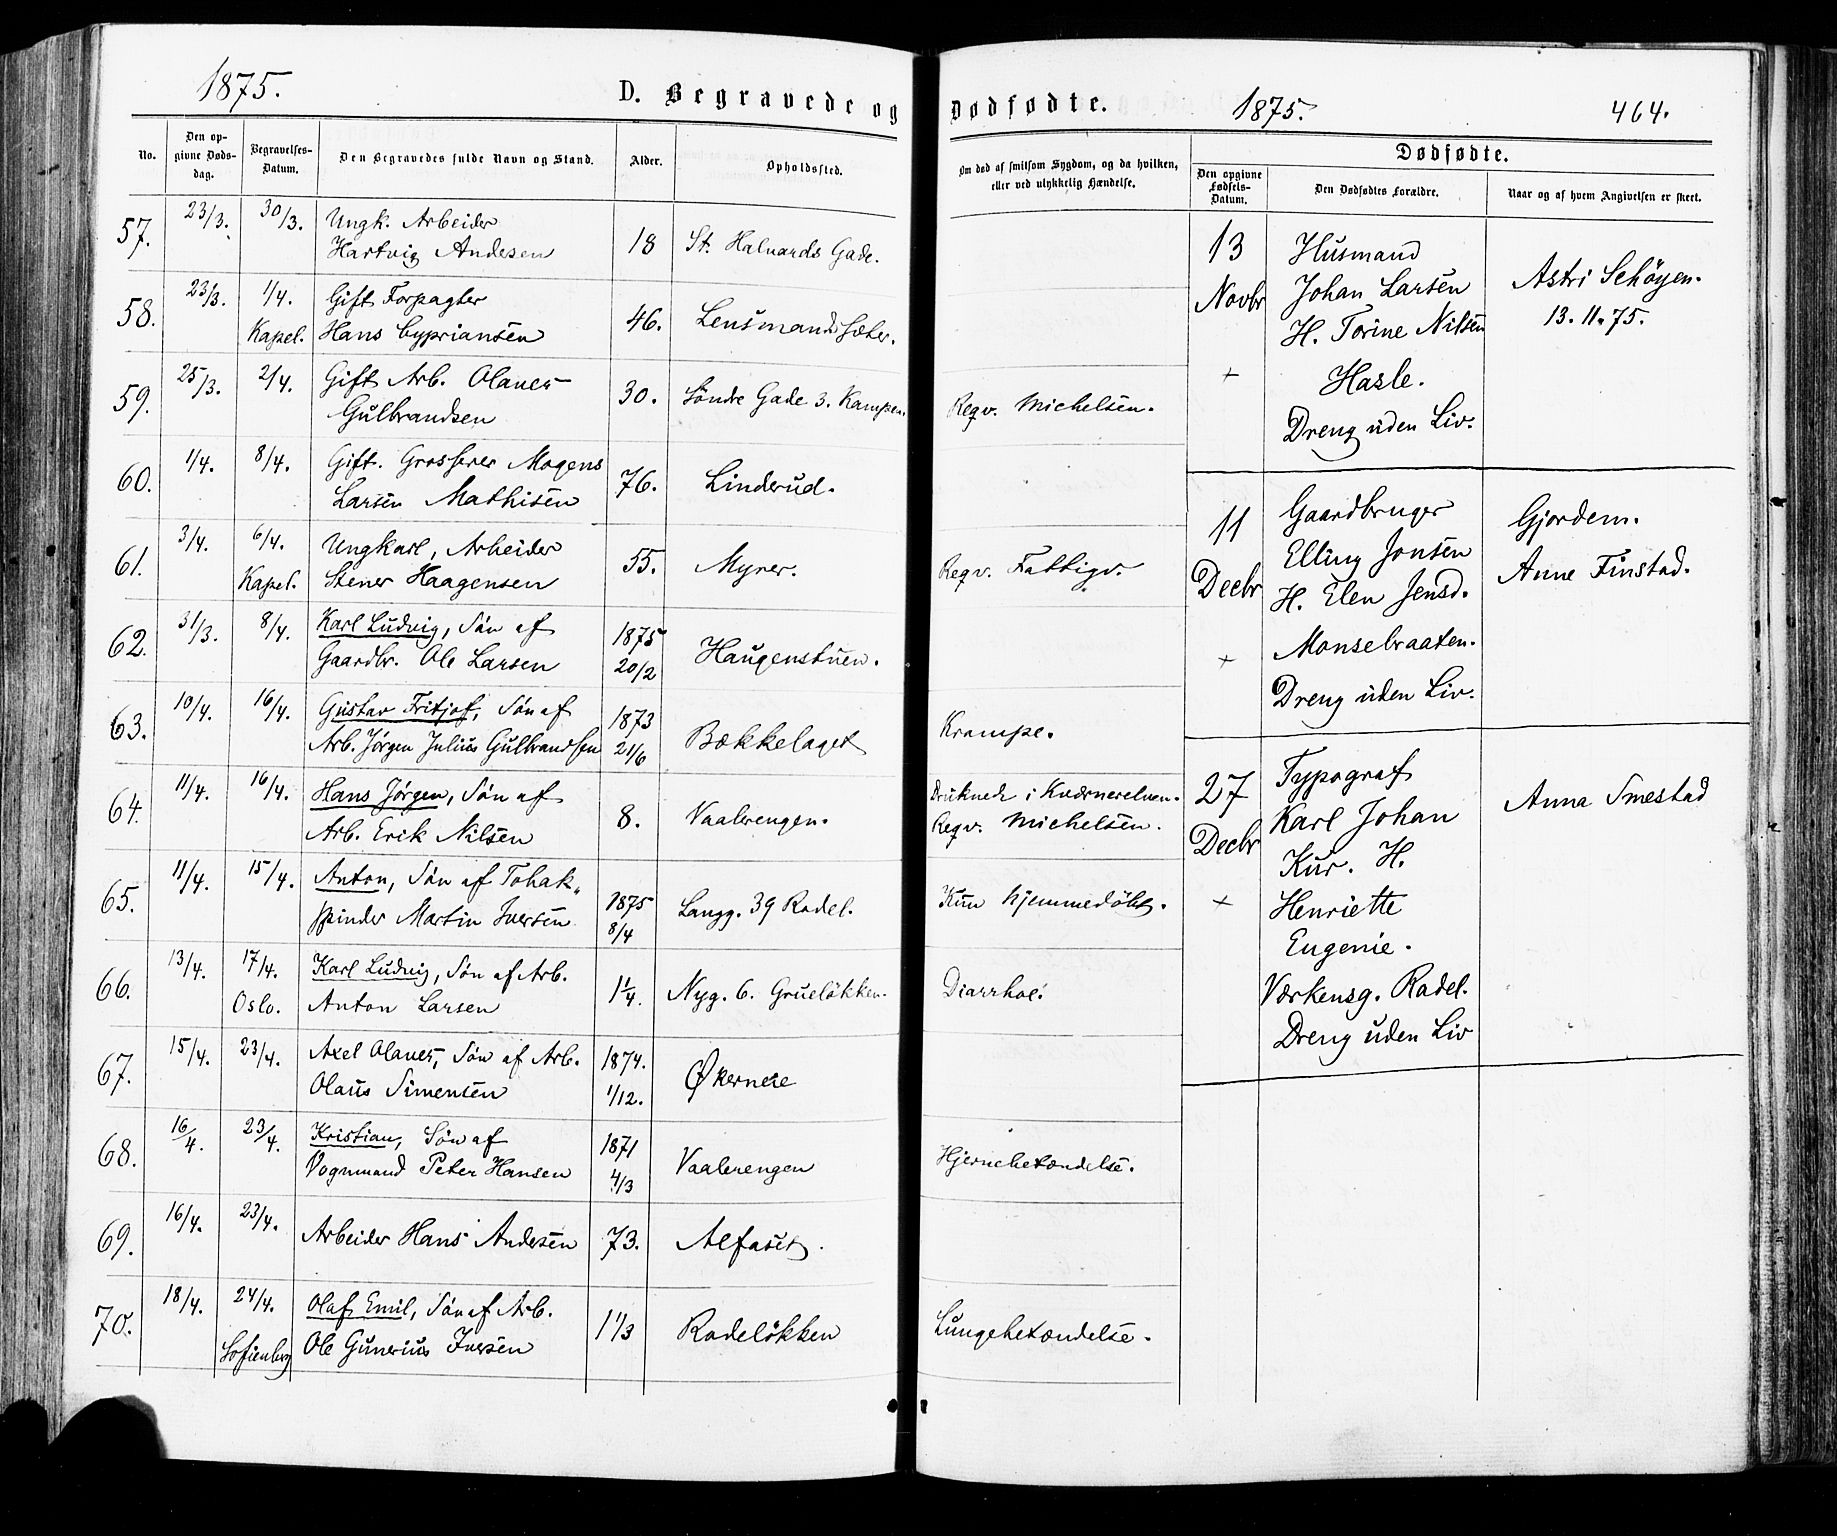 1875.
D. Begravede og
No.
Den op-
givne Døds-
dag.
Begravelses-
Datum.
Den Begravedes fulde Navn og Stand.
Alder.
Opholdssted.
57.
23/3.
30/3.
Ungk. Arbeider
Hartvig Andesen
18
St. Halvards Gade.
58.
23/3.
1/4.
Kapel.
Gift Forpagter
Hans Cypriansen
46.
Lensmandssæter.
59.
25/3.
2/4.
Gift Arb. Olaves
Gulbrandsen
30.
Söndre Gade 3. Kampen.
60.
1/4.
8/4.
Gift. Grosserer Mogens
Larsen Mathisen
76.
Linderud.
61.
3/4.
6/4.
Kapel.
Ungkarl, Arbeider
Stener Haagensen
55.
Myrer.
62.
31/3.
8/4.
Karl Ludvig, Sön af
Gaardbr. Ole Larsen
1875
20/2
Haugenstuen.
63.
10/4.
16/4.
Gustav Fritjof, Sön af
Arb. Jörgen Julius Gulbrandsen
1873
21/6
Bækkelaget
64.
11/4.
16/4.
Hans Jörgen, Sön af
Arb. Erik Nilsen
8.
Vaalerengen.
65.
11/4.
15/4.
Anton, Sön af Tobak„
spinder Martin Iversen
1875
8/4
Langg. 39 Rodel.
66.
13/4.
17/4.
Oslo.
Karl Ludvig, Sön af Arb.
Anton Larsen
1 1/4.
Nyg. 6. Grueløkken.
67.
15/4.
23/4.
Axel Olaves, Sön af Arb.
Olaus Simensen
1874.
1/12.
Økerneie
68.
16/4.
23/4.
Kristian, Sön af
Vognmand Peter Hansen
1871
4/3
Vaalerengen
69.
16/4.
23/4.
Arbeider Hans Andesen
73.
Alfaset.
70.
18/4.
24/4.
Sofienberg
Olaf Emil, Sön af Arb.
Ole Gunerius Iversen
1 1/3
Rodelökken
Dødfødte.
1875.
464.
Om død af smitsom Sygdom, og da hvilken,
eller ved ulykkelig Hændelse.
Dødfødte.
Den opgivne
Fødsels-
Datum.
Den Dødfødtes Forældre.
Naar og af hvem Angivelsen er skeet.
Reqv. Michelsen.
Reqv. Fattigv.
Krampe.
Druknede i Kværnerelven.
Reqv. Michelsen.
Kun hjemmedöbt.
Diarrhoe.
Hjernebetændelse.
Lungebetændelse.
13
Novbr
+
Husmand
Johan Larsen
H. Torine Nilsen
Hasle.
Dreng uden Liv.
Astri Sehöyen.
13.11.75.
11
Decbr
+
Gaardbruger
Elling Jonsen
H. Elen Jensd.
Monsebraaten.
Dreng uden Liv.
Gjordem.
Anne Finstad.
27
Decbr
+
Typograf
Karl Johan
Kur. H.
Henriette
Eugenie.
Værkensg. Rodel.
Dreng uden Liv
Anna Smestad